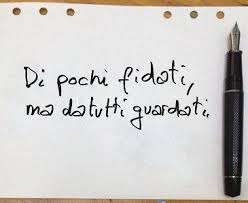 Di pochi fidati,
ma datutti guardati.